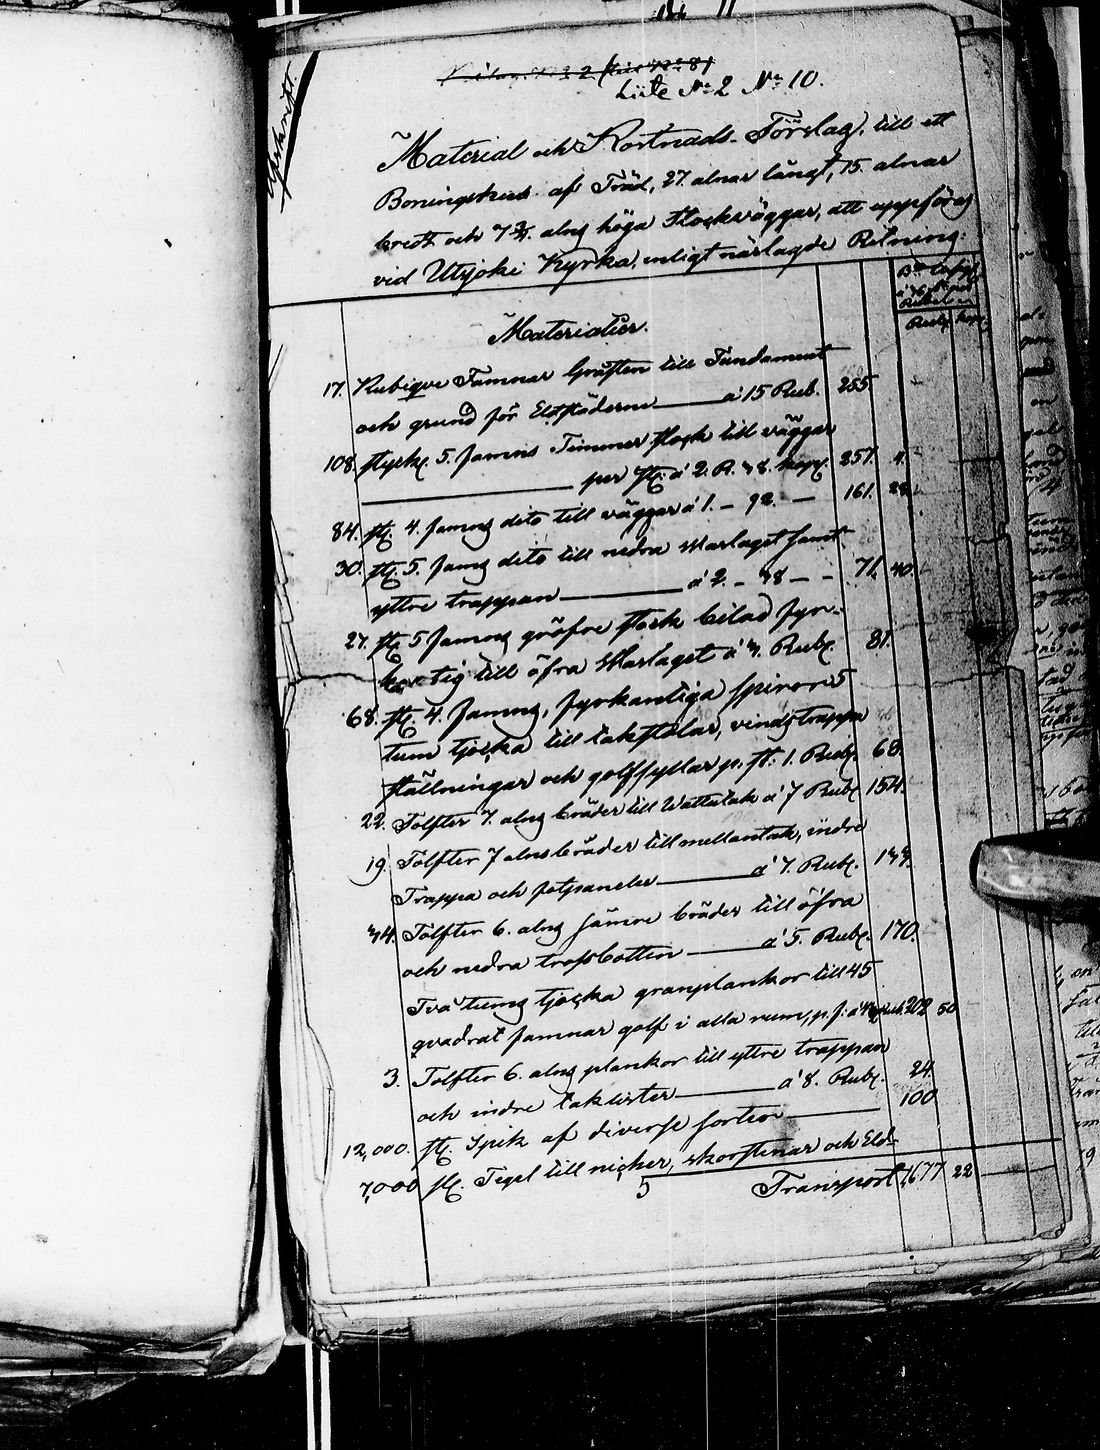 Afskrift.
Litt N:o 2 N:o 10.
Material och Kostnads-Förslag, till ett
Boningshus af Träd, 27. alnar långt, 15. alnar
bredt och 7¾. alng höga Stockväggar, att uppföras
vid Utsjoki Kyrka, enligt närlagde Ritning.
Rub. kop.
Materialier.
17. Kubique Famnar Gråsten till Fundament
och grund för Eldstäderna à 15 Rub. 255
108. stycke. 5. famns Timmer stock till väggar
per st. à 2. R. 38. kop. 257. 4.
84. st. 4. famns dito till väggar à 1. – 92. – 161. 28.
30. st. 5. famns dito till nedra Warlaget samt
yttre trappan à 2. – 38 – – 71. 40.
27. st. 5 famns gröfre stock bilad fyr-
kantig till öfra Warlaget à 3. Rub. 81.
68. st. 4. famns, fyrkantiga spiror 5
tum tjocka till takstolar, vindstrappa
ställningar och golfsyllar p. st. 1. Rub. 68.
22. Tolfter 7. alng bräder till Wattutak à 7 Rub. 154.
19. Tolfter 7 alns bräder till mellantak, indre
Trappa och fotpaneler à 7. Rub. 133.
34. Tolfter 6. alng sämre bräder till öfra
och nedra trossbotten à 5. Rub. 170.
Två tums tjocka granplankor till 45
qvadrat famnar golf i alla rum, p. f. à 4½ Rub. 202 50
3. Tolfter 6. alng plankor till yttre trappan
och indre taklister à 8. Rub. 24.
12,000. st. Spik af diverse sorter 100
7,000 st. Tegel till nischer, skorstenar och Eld-
5 Transport 1,677 22